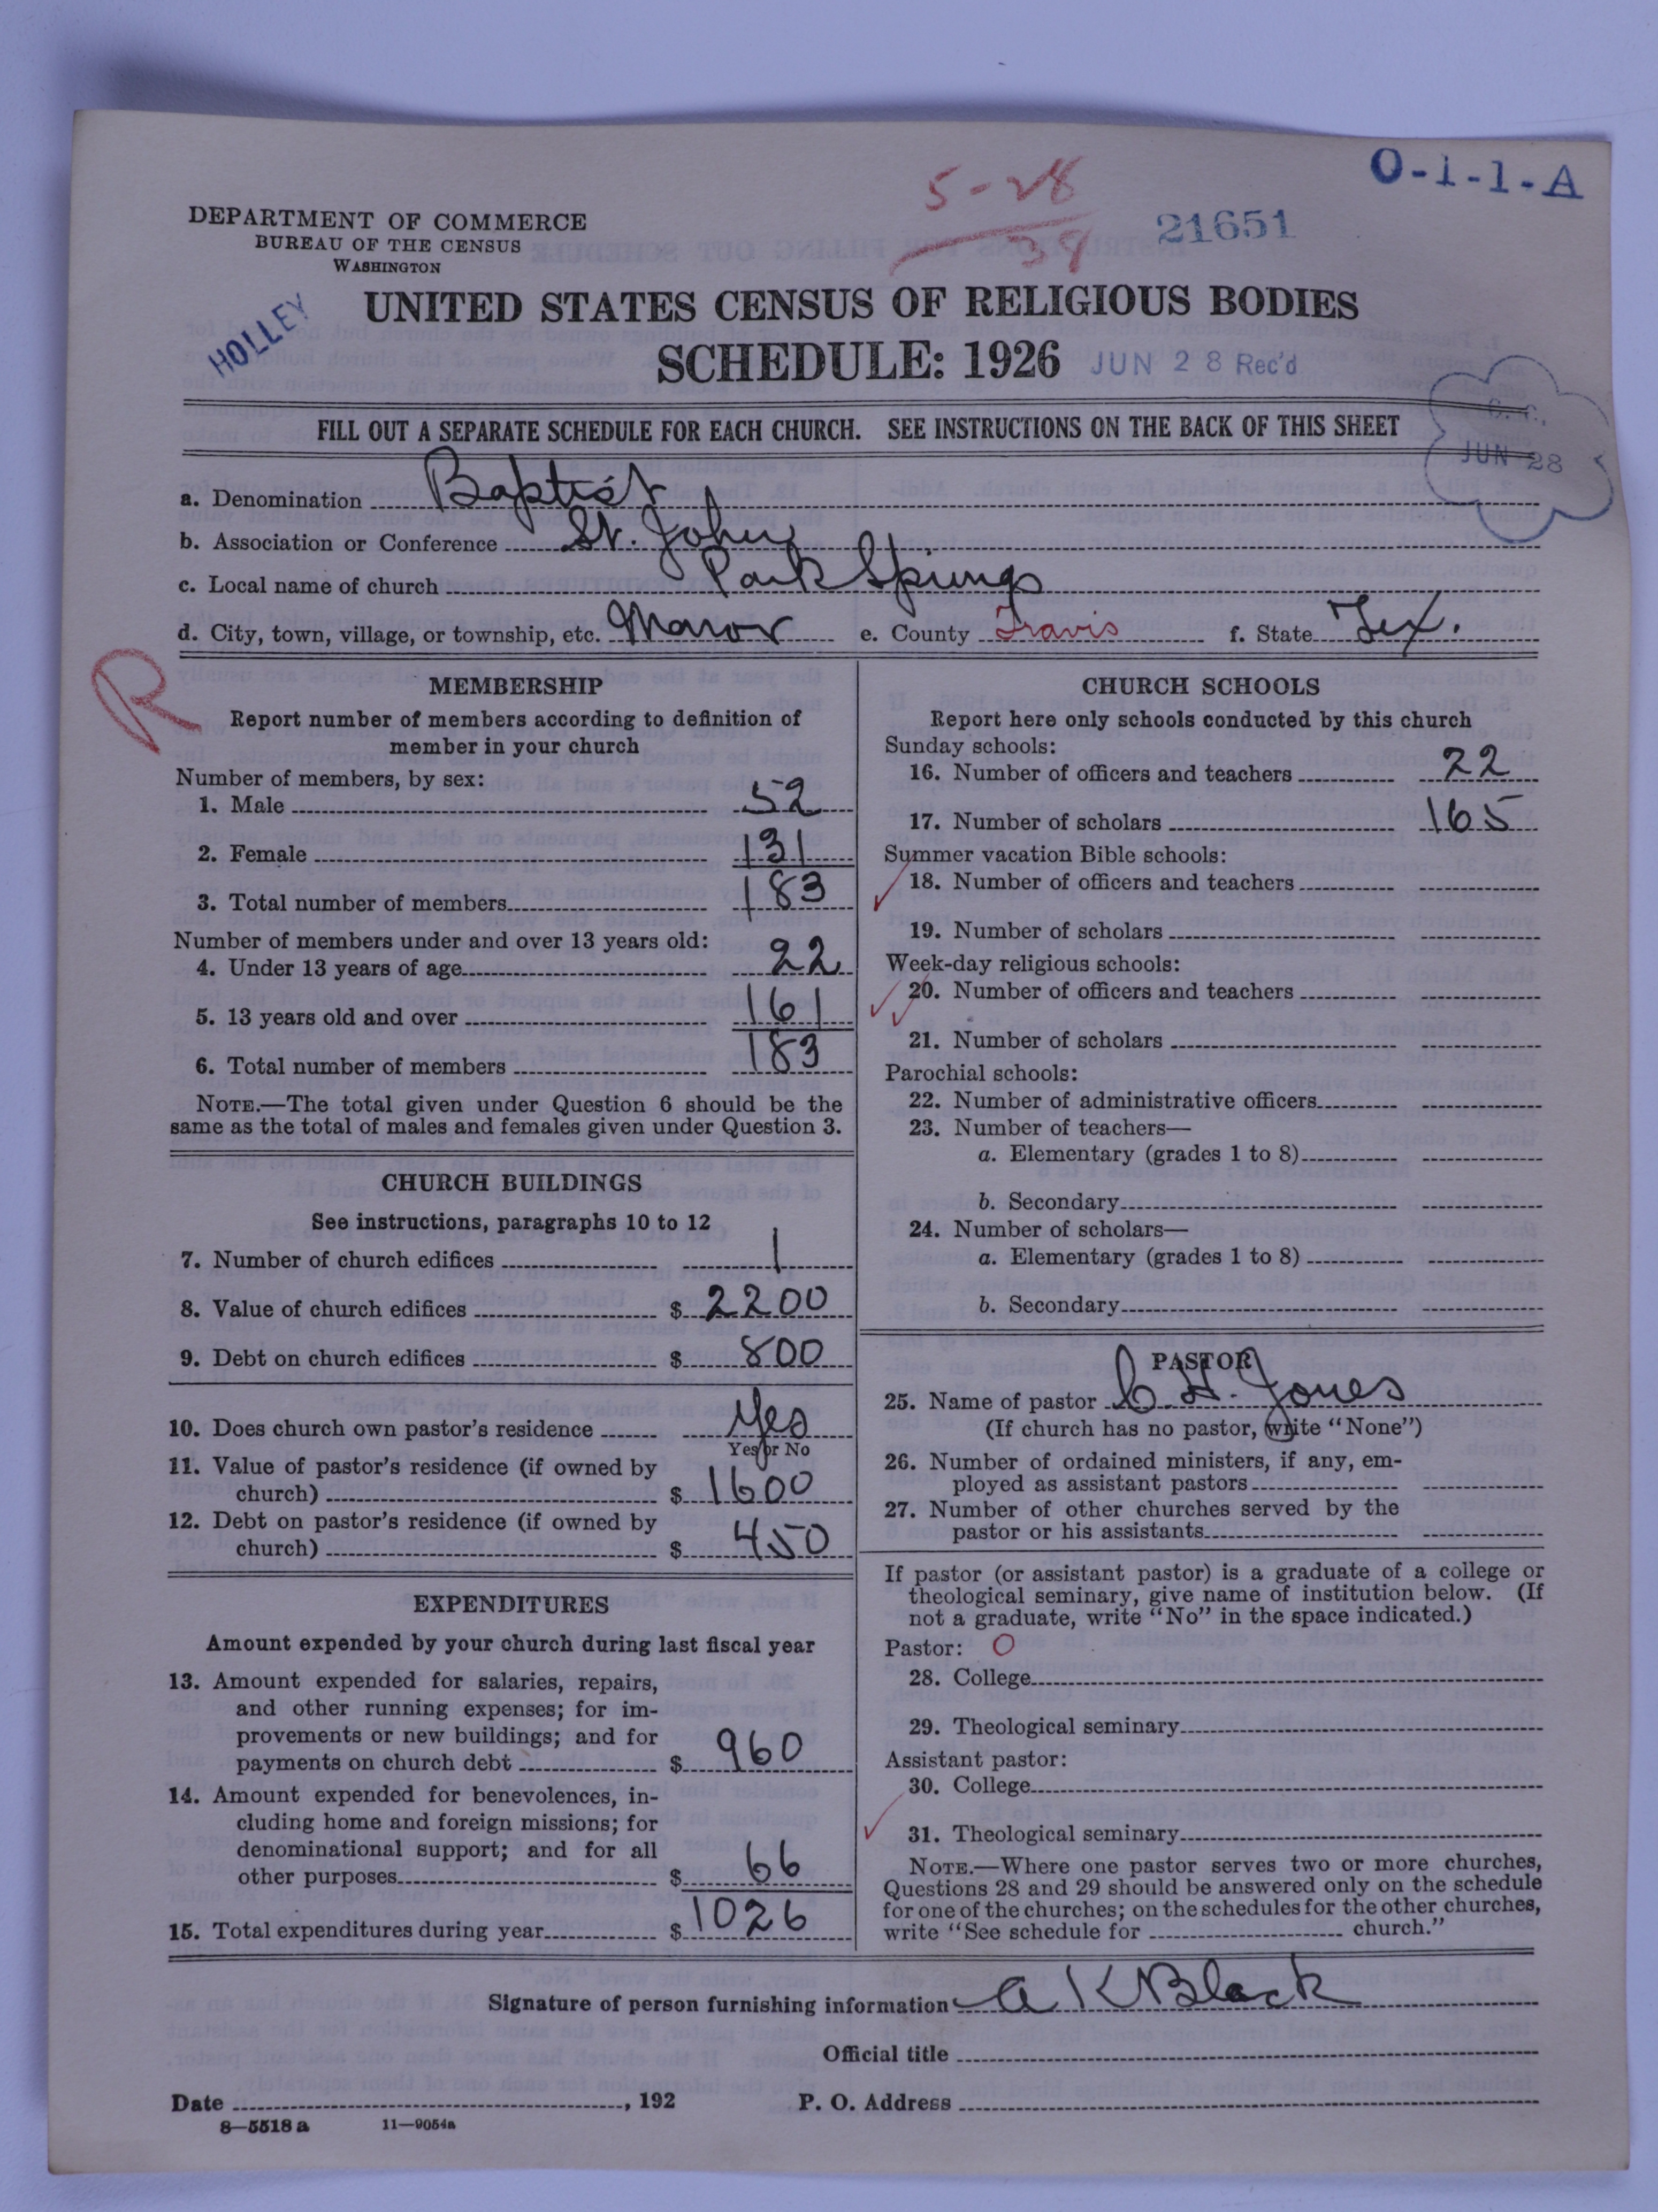 O-1-1-A
5-28
39
21651
DEPARTMENT OF COMMERCE
BUREAU OF THE CENSUS
WASHINGTON
HOLLEY
UNITED STATES CENSUS OF RELIGIOUS BODIES
SCHEDULE: 1926 JUN 28 Rec'd
FILL OUT A SEPARATE SCHEDULE FOR EACH CHURCH. SEE INSTRUCTIONS ON THE BACK OF THIS SHEET
JUN 28
a. Denomination Baptist
b. Association or Conference St. John
c. Local name of church Park Springs
d. City, town, village, or township, etc. Manor e. County Travis f. State Tex.
R
MEMBERSHIP
Report number of members according to definition of
member in your church
Number of members, by sex:
1. Male 52
2. Female 131
3. Total number of members 183
Number of members under and over 13 years old:
4. Under 13 years of age 22
5. 13 years old and over 161
6. Total number of members 183
NOTE.—The total given under Question 6 should be the
same as the total of males and females given under Question 3.
CHURCH BUILDINGS
See instructions, paragraphs 10 to 12
7. Number of church edifices 1
8. Value of church edifices $ 2200
9. Debt on church edifices $ 800
10. Does church own pastor's residence Yes
Yes or No
11. Value of pastor's residence (if owned by
church) $ 1600
12. Debt on pastor's residence (if owned by
church) $ 450
EXPENDITURES
Amount expended by your church during last fiscal year
13. Amount expended for salaries, repairs,
and other running expenses; for im-
provements or new buildings; and for
payments on church debt $ 960
14. Amount expended for benevolences, in-
cluding home and foreign missions; for
denominational support; and for all
other purposes $ 66
15. Total expenditures during year $ 1026
CHURCH SCHOOLS
Report here only schools conducted by this church
Sunday schools:
16. Number of officers and teachers 22
17. Number of scholars 165
Summer vacation Bible schools:
18. Number of officers and teachers
19. Number of scholars
Week-day religious schools:
20. Number of officers and teachers
21. Number of scholars
Parochial schools:
22. Number of administrative officers
23. Number of teachers—
a. Elementary (grades 1 to 8)
b. Secondary
24. Number of scholars—
a. Elementary (grades 1 to 8)
b. Secondary
PASTOR
25. Name of pastor C. H. Jones
(If church has no pastor, write "None")
26. Number of ordained ministers, if any, em-
ployed as assistant pastors
27. Number of other churches served by the
pastor or his assistants
If pastor (or assistant pastor) is a graduate of a college or
theological seminary, give name of institution below. (If
not a graduate, write "No" in the space indicated.)
Pastor: O
28. College
29. Theological seminary
Assistant pastor:
30. College
31. Theological seminary
NOTE.—Where one pastor serves two or more churches,
Questions 28 and 29 should be answered only on the schedule
for one of the churches; on the schedules for the other churches,
write "See schedule for church."
Signature of person furnishing information A K Black
Official title
Date , 192 P. O. Address
8—5518 a 11—9054a